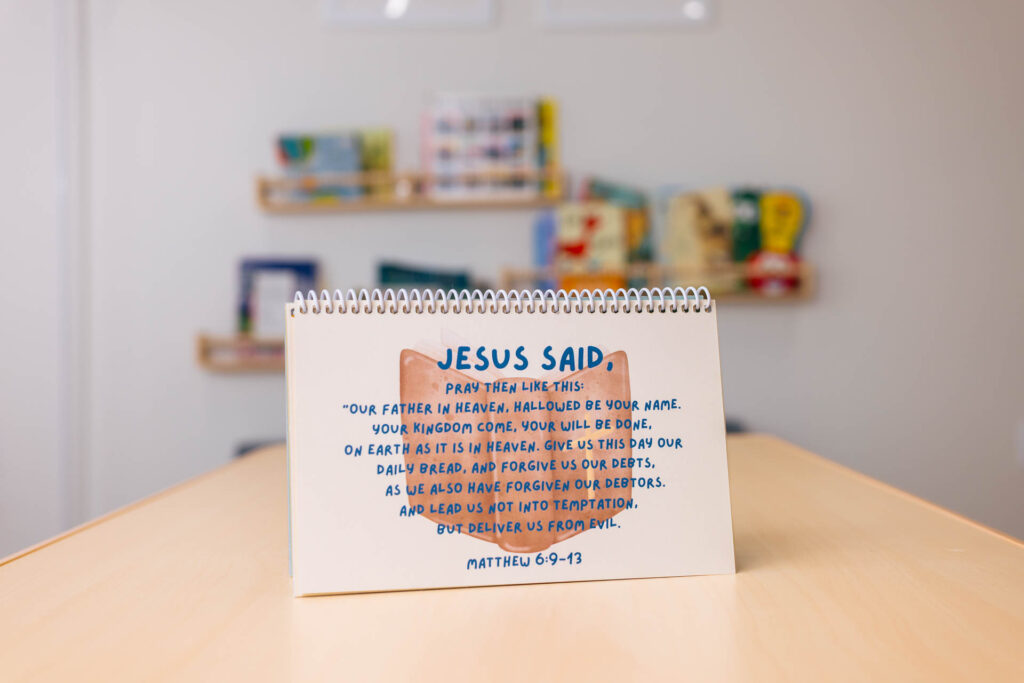 JESUS SAID,
PRAY THEN LIKE THIS:
"OUR FATHER IN HEAVEN, HALLOWED BE YOUR NAME.
YOUR KINGDOM COME, YOUR WILL BE DONE,
ON EARTH AS IT IS IN HEAVEN. GIVE US THIS DAY OUR
DAILY BREAD, AND FORGIVE US OUR DEBTS,
AS WE ALSO HAVE FORGIVEN OUR DEBTORS.
AND LEAD US NOT INTO TEMPTATION,
BUT DELIVER US FROM EVIL.
MATTHEW 6:9-13